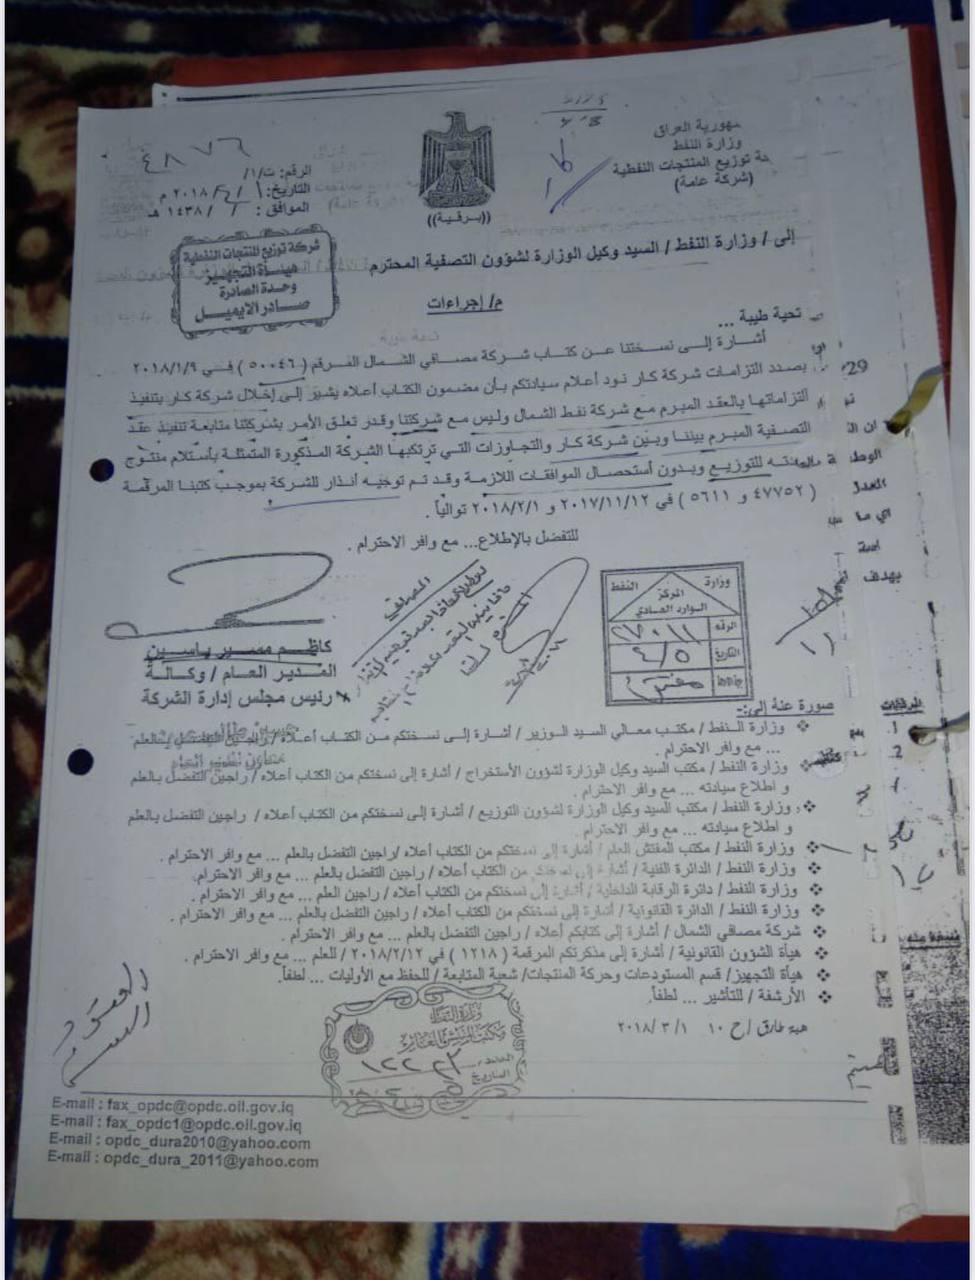 جمهورية العراق
وزارة النفط
توزيع المنتجات النفطية
(شركة عامة)
((برقية))
الرقم: ت/١/ ٤٨٧٦
التاريخ: / /٢٠١٨ م
الموافق: / /١٤٣٨ هـ
شركة توزيع المنتجات النفطية
هيئة التجهيز
وحدة الصادرة
صادر الايميل
إلى / وزارة النفط / السيد وكيل الوزارة لشؤون التصفية المحترم
م/ إجراءات
تحية طيبة ...
أشارة إلى نسختنا عن كتاب شركة مصافي الشمال المرقم (٥٠٠٤٦) في ٢٠١٨/١/٩
بصدد التزامات شركة كار نود أعلام سيادتكم بأن مضمون الكتاب أعلاه يشير إلى إخلال شركة كار بتنفيذ
التزاماتها بالعقد المبرم مع شركة نفط الشمال وليس مع شركتنا وقدر تعلق الأمر بشركتنا متابعة تنفيذ عقد
التصفية المبرم بيننا وبين شركة كار والتجاوزات التي ترتكبها الشركة المذكورة المتمثلة بأستلام منتوج
للتوزيع وبدون أستحصال الموافقات اللازمة وقد تم توجيه أنذار للشركة بموجب كتبنا المرقمة
(٤٧٧٥٢ و ٥٦١١) في ٢٠١٧/١١/١٢ و ٢٠١٨/٢/١ توالياً .
للتفضل بالإطلاع... مع وافر الاحترام .
كاظم مسير ياسين
المدير العام / وكالة
رئيس مجلس إدارة الشركة
وزارة النفط
المركز
الوارد العادي
الرقم
التاريخ
صورة عنه إلى:-
وزارة النفط / مكتب معالي السيد الوزير / أشارة إلى نسختكم من الكتاب أعلاه / راجين التفضل بالعلم
... مع وافر الاحترام .
وزارة النفط / مكتب السيد وكيل الوزارة لشؤون الأستخراج / أشارة إلى نسختكم من الكتاب أعلاه / راجين التفضل بالعلم
و اطلاع سيادته ... مع وافر الاحترام .
وزارة النفط / مكتب السيد وكيل الوزارة لشؤون التوزيع / أشارة إلى نسختكم من الكتاب أعلاه / راجين التفضل بالعلم
و اطلاع سيادته ... مع وافر الاحترام .
وزارة النفط / مكتب المفتش العام / أشارة إلى نسختكم من الكتاب أعلاه /راجين التفضل بالعلم ... مع وافر الاحترام .
وزارة النفط / الدائرة الفنية / أشارة إلى نسختكم من الكتاب أعلاه / راجين التفضل بالعلم ... مع وافر الاحترام.
وزارة النفط / دائرة الرقابة الداخلية / أشارة إلى نسختكم من الكتاب أعلاه / راجين العلم ... مع وافر الاحترام .
وزارة النفط / الدائرة القانونية / أشارة إلى نسختكم من الكتاب أعلاه / راجين التفضل بالعلم ... مع وافر الاحترام .
شركة مصافي الشمال / أشارة إلى كتابكم أعلاه / راجين التفضل بالعلم ... مع وافر الاحترام .
هيأة الشؤون القانونية / أشارة إلى مذكرتكم المرقمة (١٢١٨) في ٢٠١٨/٢/١٢ / للعلم ... مع وافر الاحترام .
هيأة التجهيز/ قسم المستودعات وحركة المنتجات/ شعبة المتابعة / للحفظ مع الأوليات ... لطفاً.
الأرشفة / للتأشير ... لطفاً.
هبة طارق / ح ١٠ ٢٠١٨/٣/١
وزارة النفط
مكتب المفتش العام
العدد
التاريخ
E-mail : fax_opdc@opdc.oil.gov.iq
E-mail : fax_opdc1@opdc.oil.gov.iq
E-mail : opdc_dura2010@yahoo.com
E-mail : opdc_dura_2011@yahoo.com